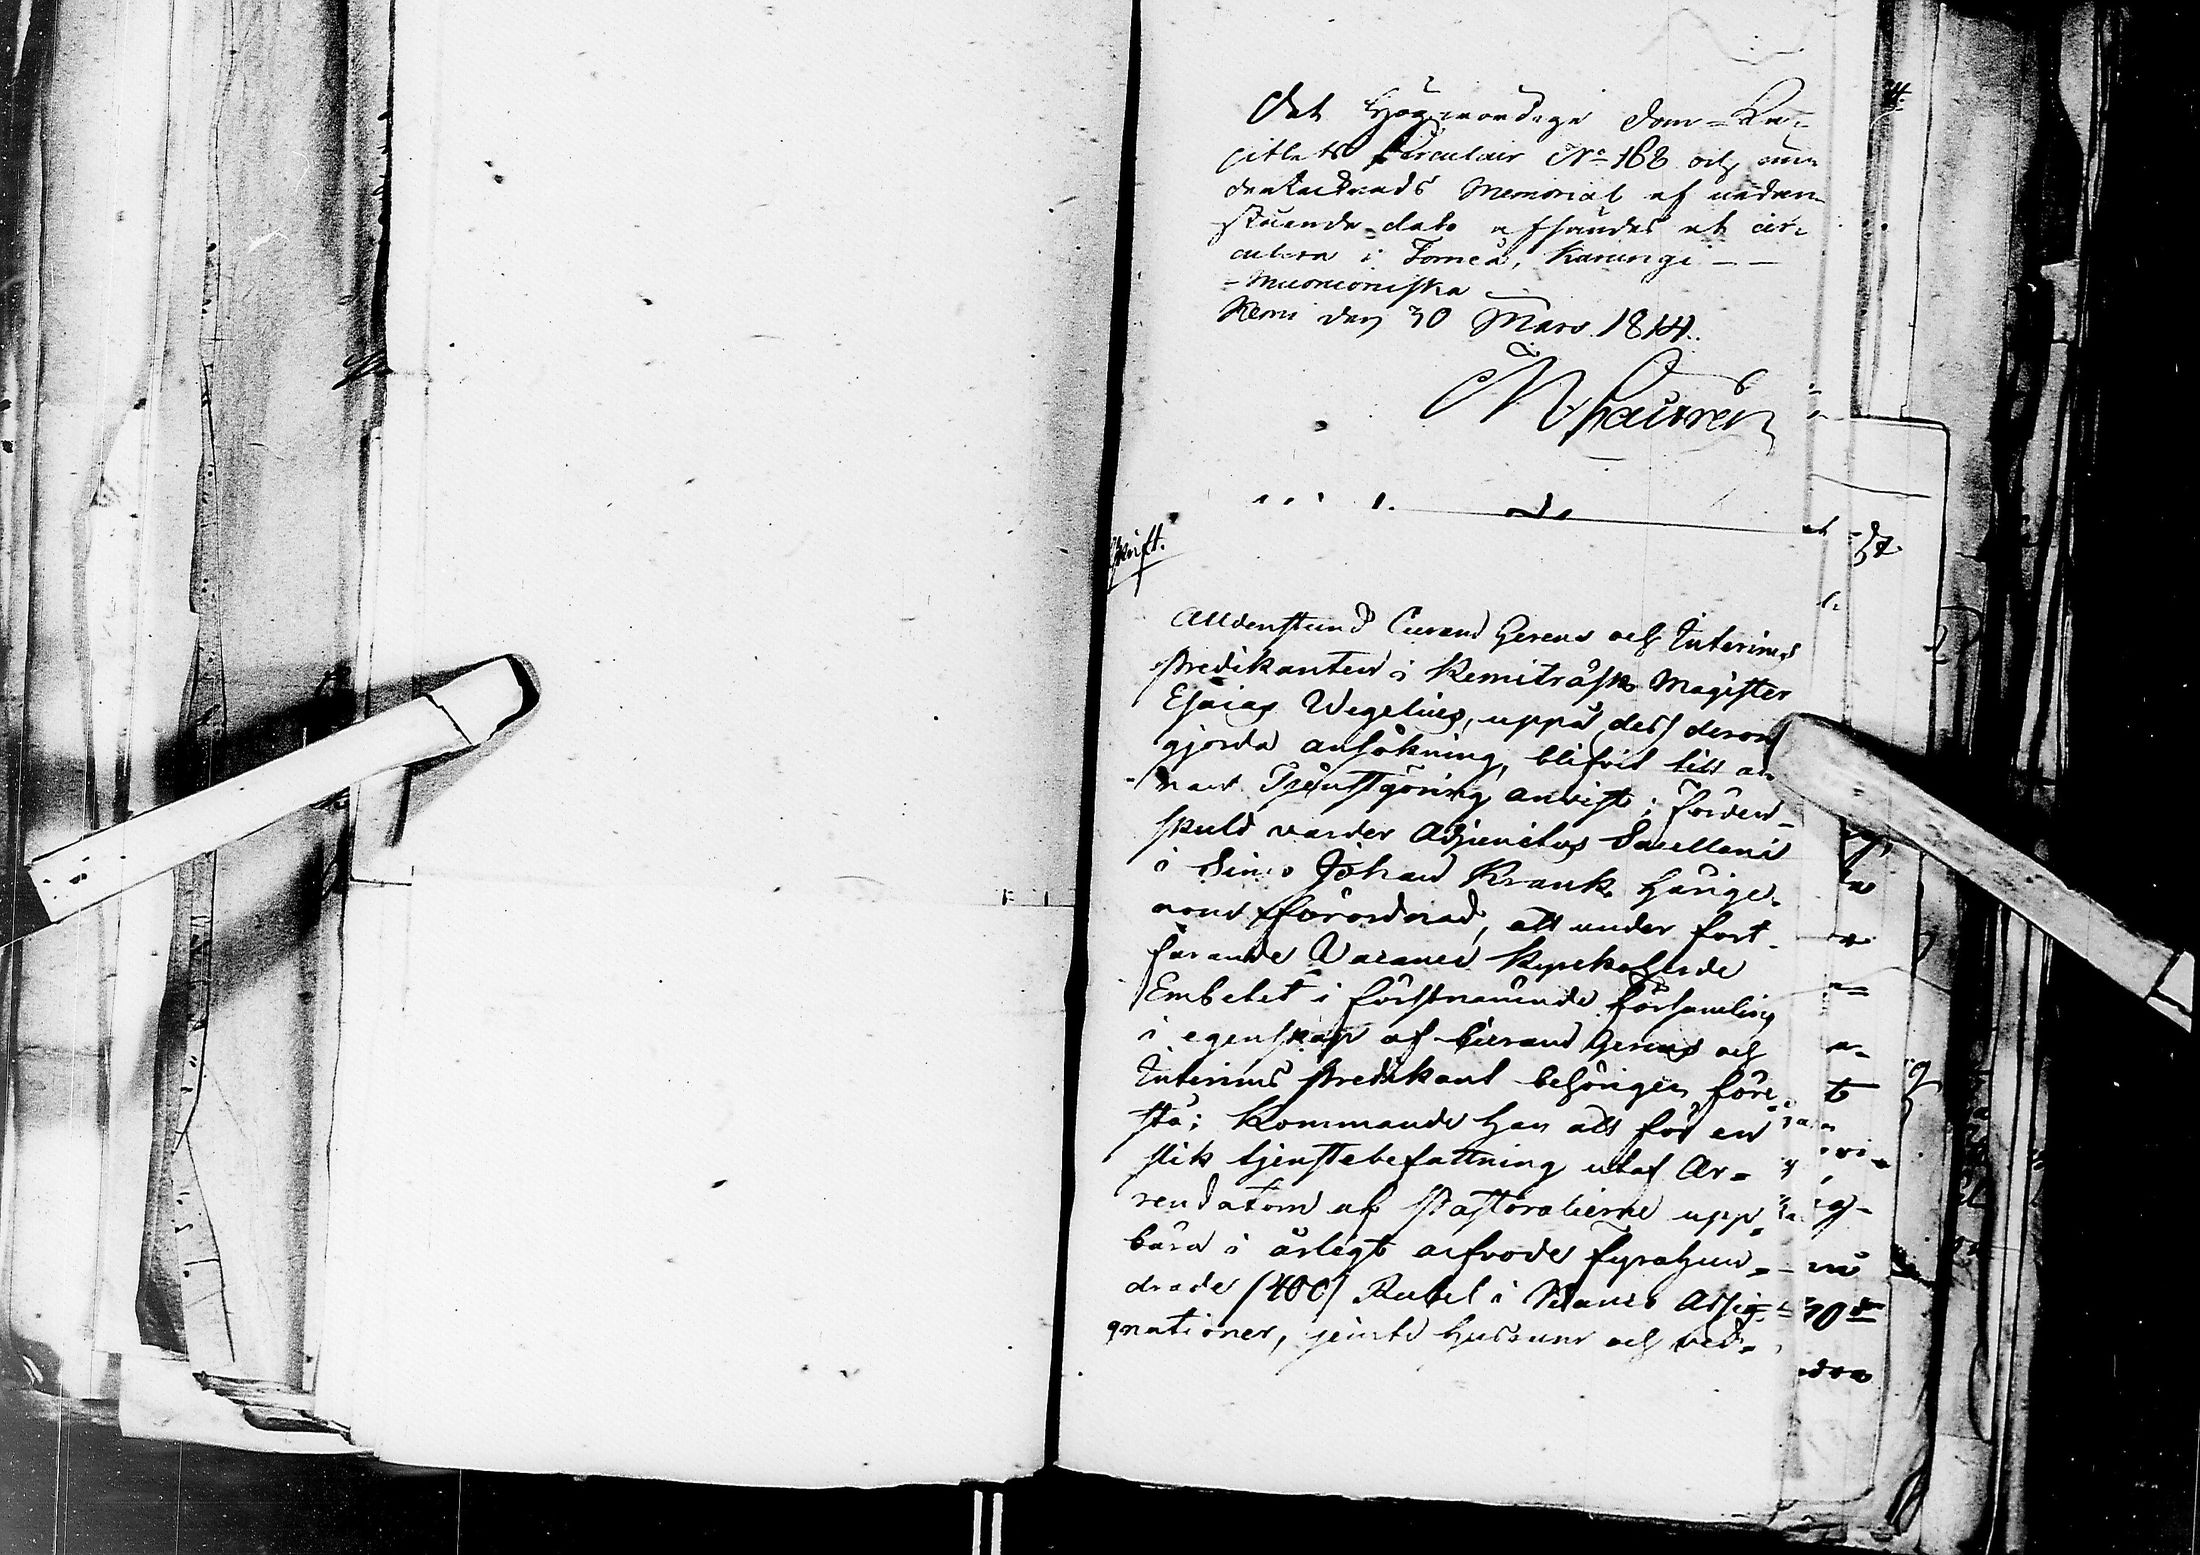 Det Högwördige Dom-Ka-
pitlets Circulair No 168 och un-
dertecknads Memorial af nedan-
stående dato afsändes at cir-
culera i Torneå, Karungi - -
- Muonioniska
Kemi den 30 Mars 1814.
skrift.
Alldenstund Curam Gerens och Interims
Predikanten i Kemiträsk Magister
Esaias Wegelius, uppå dess derom
gjorda ansökning, blifvit till an-
nan Tjenstgöring anvist; fördens-
skuld varder Adjunctus Sacellani
i Simo Johan Krank härige-
nom förordnad, att under fort-
farande Vacance Kyrkoherde
Embetet i förstnämnde Församling
i egenskap af Curam Gerens och
Interims Predikant behörigen före-
stå; Kommande han att för en
slik tjenstebefattning utaf Ar-
rendatorn af Pastoralierne upp-
bära i årligt arfvode fyrahun-
drade /400/ Rubel i Banco Assig-
gnationer, jemte husrum och ved-